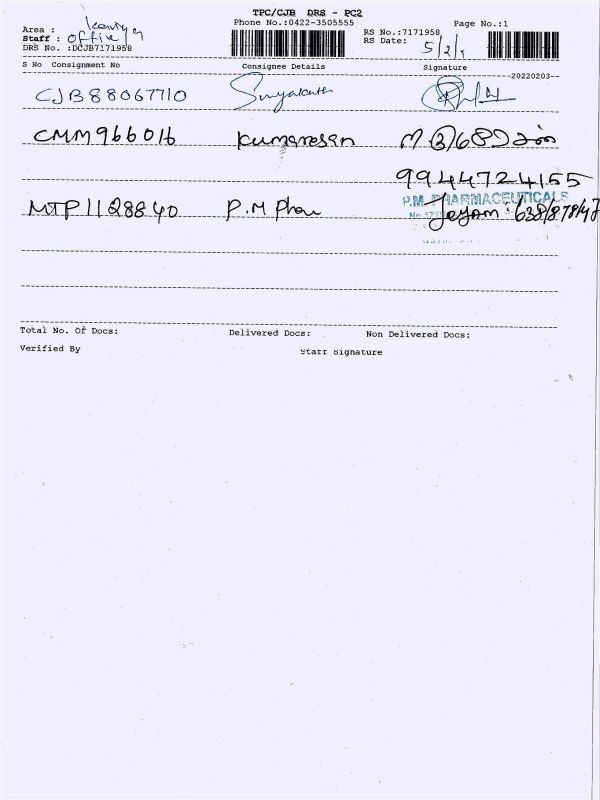 TPC/CJB DRS - PC2
Area : Kaviya Phone No.:0422-3505555 RS No.:7171958 Page No.:1
Staff : office RS Date: 5/2/
DRS No. :DCJB7171958
S No Consignment No Consignee Details Signature
--20220203--
CJB88067710 Suryakanth
CMM966016 Kumaresan
9944724155
P.M. PHARMACEUTICALS
MTP1128840 P.M Phar Jeyam:
Total No. Of Docs: Delivered Docs: Non Delivered Docs:
Verified By Staff Signature